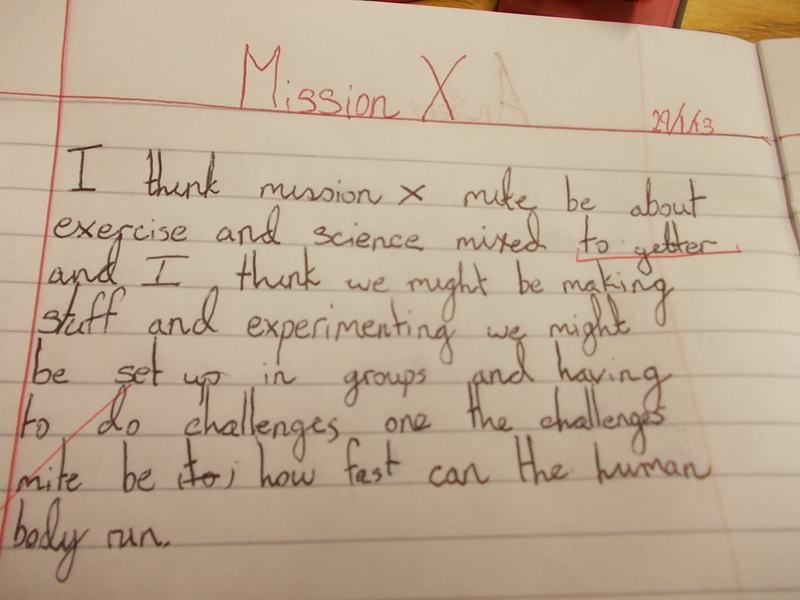 Mission X
29/1/13
I think mission x mite be about
exercise and science mixed to getter
and I think we might be making
stuff and experimenting we might
be set up in groups and having
to do challenges one the challenges
mite be (to) how fast can the human
body run.